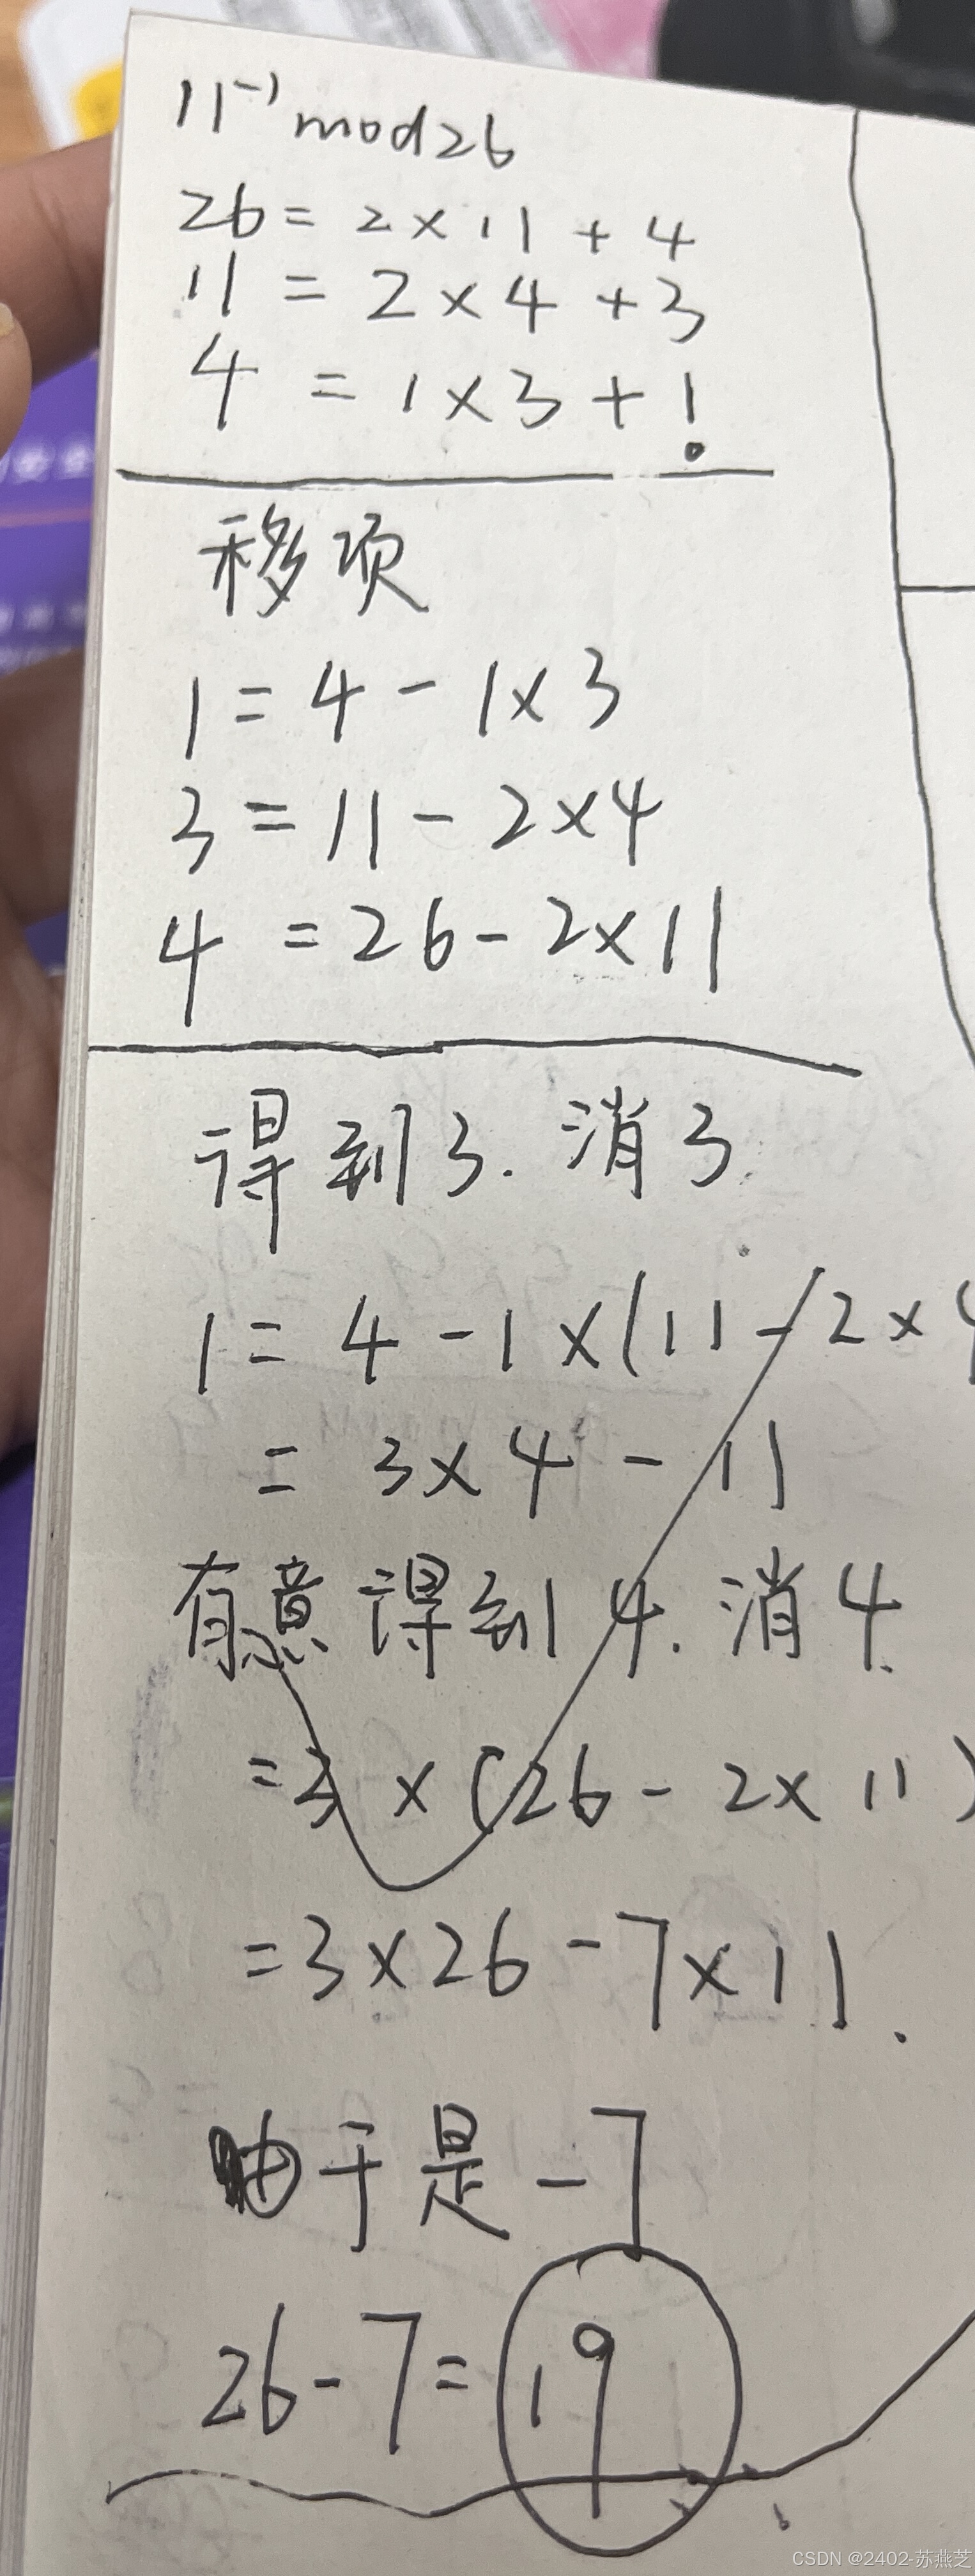 11⁻¹ mod26
26 = 2 × 11 + 4
11 = 2 × 4 + 3
4 = 1 × 3 + 1
移项
1 = 4 - 1×3
3 = 11 - 2×4
4 = 26 - 2×11
得到3. 消3
1 = 4 - 1 × (11 - 2 × 4
= 3 × 4 - 11
有意得到4. 消4
= 3 × (26 - 2 × 11)
= 3 × 26 - 7 × 11.
由于是 -7
26 - 7 = 19
CSDN @2402-苏燕芝